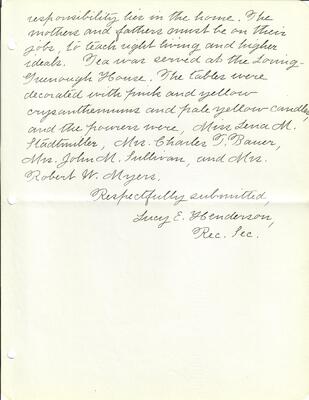 responsibility lies in the home. The
mothers and fathers must be on their
jobs, to teach right living and higher
ideals. Tea was served at the Loring-
Greenough House. The tables were
decorated with pink and yellow
crysanthemums and pale yellow candles,
and the powers were, Miss Lena M.
Stadtmiller, Mrs. Charles T. Bauer,
Mrs. John M. Sullivan, and Mrs.
Robert W. Myers.
Respectfully submitted,
Lucy E. Henderson,
Rec. Sec.